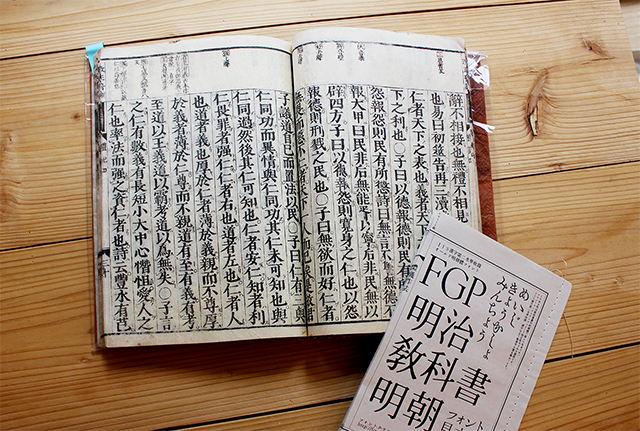 辭不相接也無禮不相見
也易曰初筮告再三瀆
仁者天下之表也義者天
下之利也〇子曰以德報德則民有
怨報怨則民有所懲詩曰無言不
報大甲曰民非后無能胥以寧后非民無以
辟四方子曰以德報怨則寬身之仁也以怨
報德則刑戮之民也〇子曰無欲而好仁者
子議道自己而置法以民〇子曰仁有三與
仁同功而異情與仁同功其仁未可知也與
仁同過然後其仁可知也仁者安仁知者利
仁畏罪者强仁仁者右也道者左也仁者人
也道者義也厚於仁者薄於義親而不尊厚
於義者薄於仁尊而不親道有至有義有考
至道以王義道以霸考道以爲無失〇子言
之仁有數義有長短小大中心憯怛愛人之
仁也率法而强之資仁者也詩云豐水有芑
めいじ
きょうかしょ
みんちょう
FGP
明治
教科書
明朝
フォント